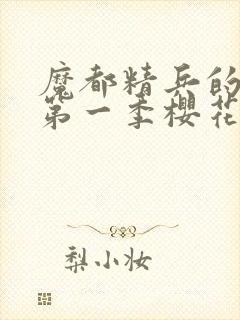 魔都精兵的
第一季樱花
梨小妆